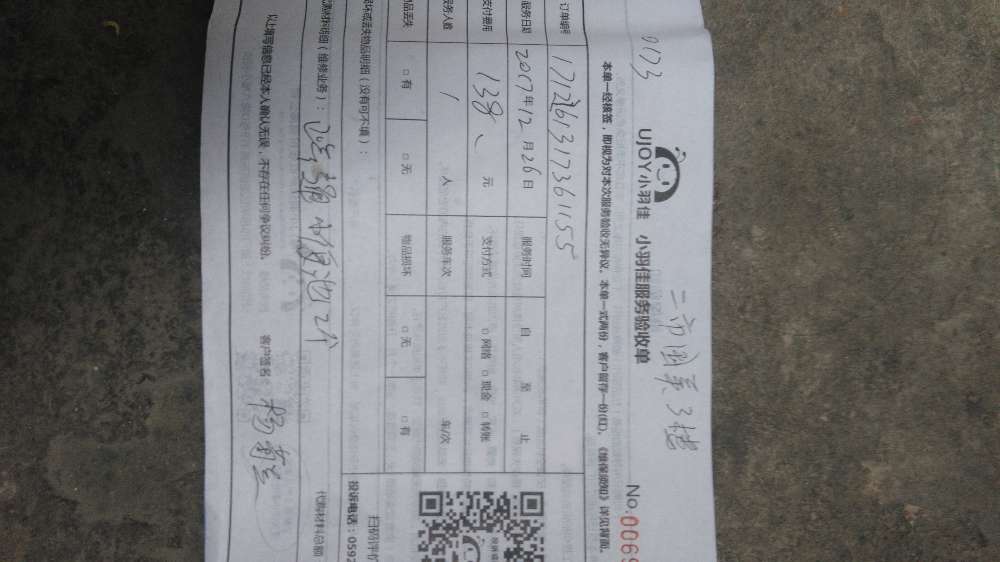 0173
UJOY小羽佳 小羽佳服务验收单
No.0069
本单一经核签，即视为对本次服务验收无异议。本单一式两份，客户留存一份(红)。《维保须知》详见背面。
订单编号 171261317361155
服务日期 2017年12月26日 服务时间 自 至 止
支付费用 138、元 支付方式 □网络 □现金 □转账
服务人数 1 人 服务车次 车/次
物品丢失 □有 □无 物品损坏 □无 □有
损坏或丢失物品明细（没有可不填）：
扫码评价
投诉电话：0592
材料明细（维修业务）：
代购材料总额
以上填写信息已经本人确认无误，不存在任何争议纠纷。 客户签名